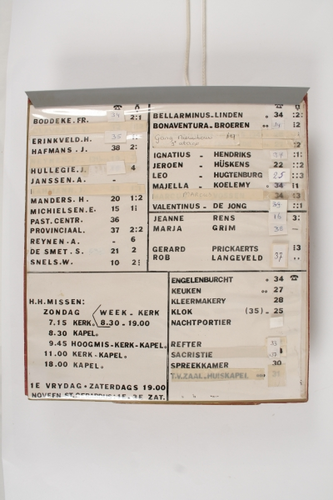 BODDEKE. FR. 2:1
ERINKVELD. H.
HAFMANS - J. 38 2:
HULLEGIE. J.
JANSSEN. A. -
MANDERS. H. 20 1:2
MICHIELSEN. E. 15 1:1
PAST. CENTR. 36
PROVINCIAAL. 37 2:2
REYNEN - A. - 6
DE SMET. S. 21 2
SNELS. W. 10
BELLARMINUS - LINDEN 34 :2
BONAVENTURA - BROEREN
IGNATIUS - HENDRIKS
JEROEN - HÜSKENS 22
LEO - HUGTENBURG 25 :3
MAJELLA - KOELEMY 34
VALENTINUS - DE JONG
JEANNE RENS
MARJA GRIM
GERARD PRICKAERTS :3
ROB LANGEVELD 37
H.H. MISSEN:
ZONDAG WEEK - KERK
7.15 KERK. 8.30 - 19.00
8.30 KAPEL.
9.45 HOOGMIS-KERK-KAPEL.
11.00 KERK-KAPEL.
18.00 KAPEL.
1E VRYDAG+ZATERDAGS 19.00
ENGELENBURCHT 34
KEUKEN 27
KLEERMAKERY 28
KLOK (35) 25
NACHTPORTIER
REFTER
SACRISTIE
SPREEKKAMER 30
T.V. ZAAL. HUISKAPEL